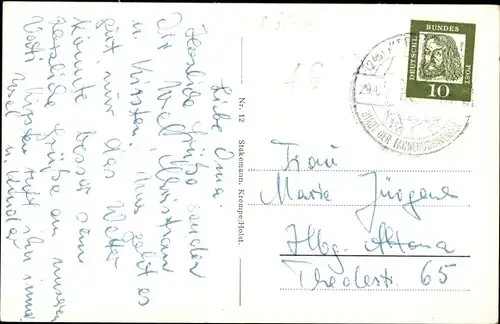 Liebe Oma.
Herzliche Grüße senden
Dir Axel, Christian
u. Kirsten. Uns geht es
gut, nur das Wetter
könnte besser sein
Herzliche Grüße an unseren
Vati. Kirsten ruft ihn immer
Axel u. Kinder
Nr. 12 Stakemann, Krempe/Holst.
DEUTSCHE BUNDESPOST
10
STADT DER
Frau
Marie Jürgens
Hbg.-Altona
Thedestr. 65